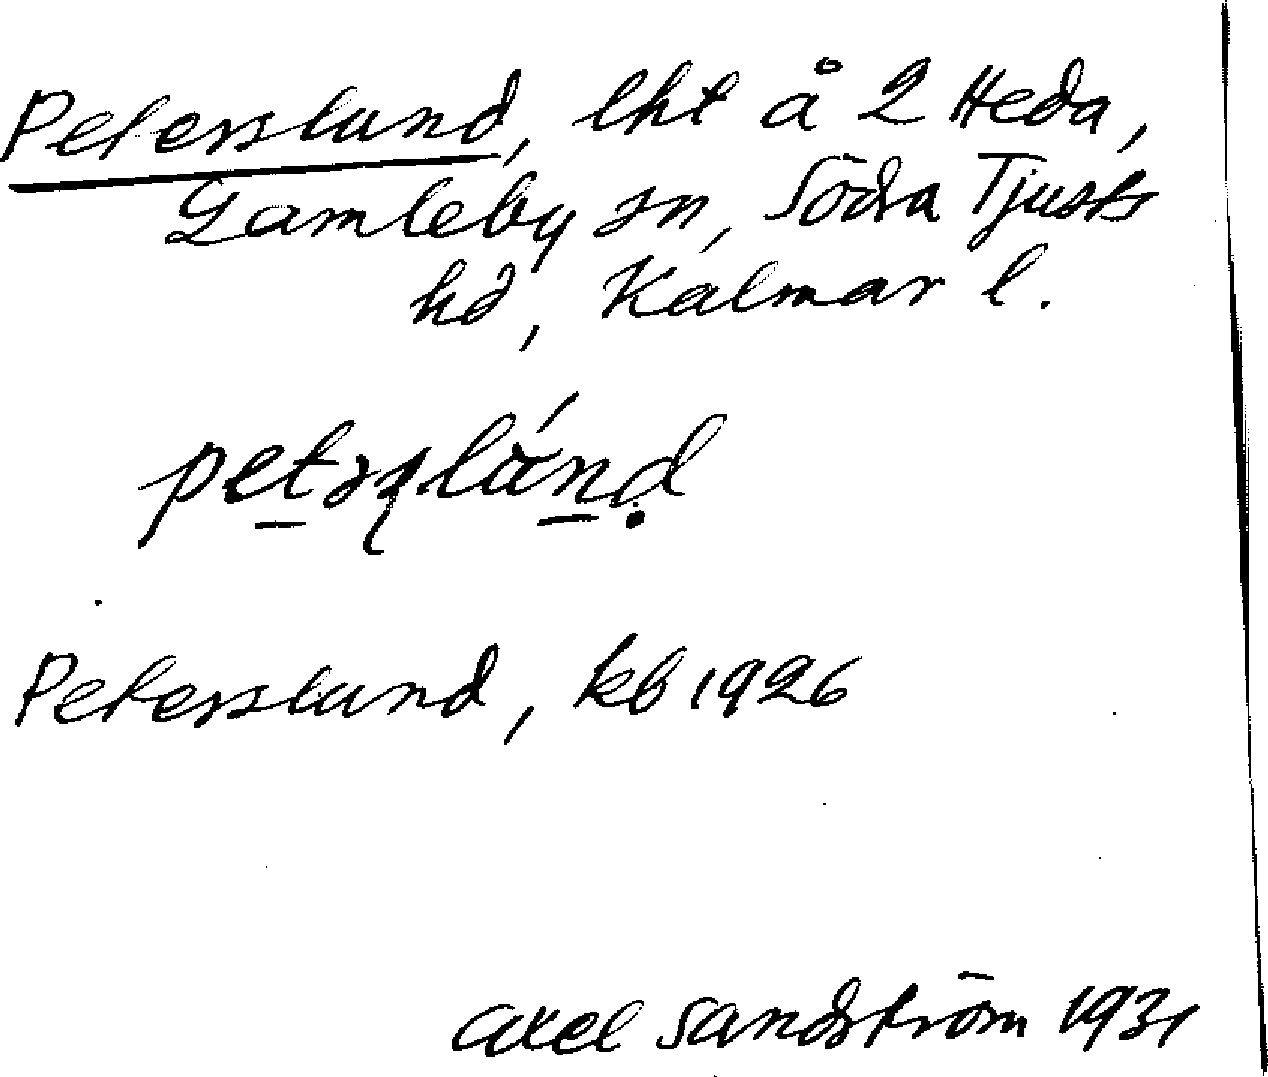 Peterslund, lht å 2 Heda,
Gamleby sn, Södra Tjusts
hd, Kalmar l.
Peterslund, kb 1926
Axel Sandström 1931